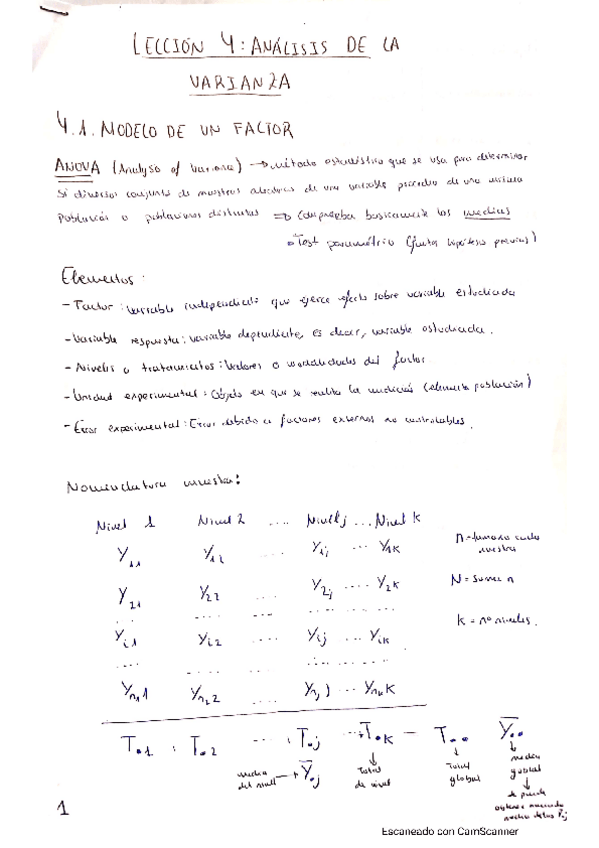 LECCIÓN 4: ANÁLISIS DE LA
VARIANZA
4.1. MODELO DE UN FACTOR
ANOVA (Analysis of Variance) → método estadístico que se usa para determinar
si diversos conjuntos de muestras aleatorias de una variable proceden de una misma
población o poblaciones distintas ⇒ Comprueba basicamente las medias
Test paramétrico (juntas hipótesis previas)
Elementos:
- Factor: variable independiente que ejerce efecto sobre variable estudiada
- Variable respuesta: variable dependiente, es decir, variable estudiada.
- Niveles o tratamientos: Valores o modalidades del factor
- Unidad experimental: Objeto en que se realiza la medición (elemento población)
- Error experimental: Error debido a factores externos no controlables.
Nomenclatura muestra:
Nivel 1 Nivel 2 .... Nivel j ... Nivel k
Y11 Y12 .... Y1j ... Y1K n = tamaño cada muestra
Y21 Y22 .... Y2j .... Y2K N = suma n
.... .... .... .... K = no niveles.
Yi1 Yi2 .... Yij ... YiK
.... .... .... ....
Yn11 Yn22 .... Ynjj ... YnkK
T•1 T•2 ... T•j ... T•K — T•• Ȳ••
media del nivel → Ȳ•j Total de nivel Total global media global
se puede
obtener
1
Escaneado con CamScanner